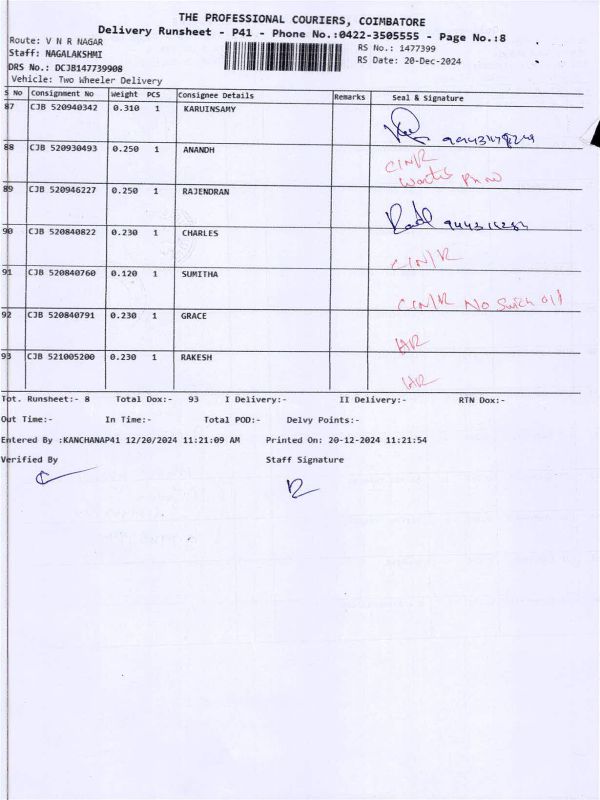 THE PROFESSIONAL COURIERS, COIMBATORE
Delivery Runsheet - P41 - Phone No.:0422-3505555 - Page No.:8
Route: V N R NAGAR
RS No.: 1477399
Staff: NAGALAKSHMI
RS Date: 20-Dec-2024
DRS No.: DCJB147739908
Vehicle: Two Wheeler Delivery
S No Consignment No Weight PCS Consignee Details Remarks Seal & Signature
87 CJB 520940342 0.310 1 KARUINSAMY
88 CJB 520930493 0.250 1 ANANDH
CIN/R
Ph no
89 CJB 520946227 0.250 1 RAJENDRAN
90 CJB 520840822 0.230 1 CHARLES
CIN/R
91 CJB 520840760 0.120 1 SUMITHA
CIN/R No Swich off
92 CJB 520840791 0.230 1 GRACE
93 CJB 521005200 0.230 1 RAKESH
Tot. Runsheet:- 8 Total Dox:- 93 I Delivery:- II Delivery:- RTN Dox:-
Out Time:- In Time:- Total POD:- Delvy Points:-
Entered By :KANCHANAP41 12/20/2024 11:21:09 AM Printed On: 20-12-2024 11:21:54
Verified By Staff Signature